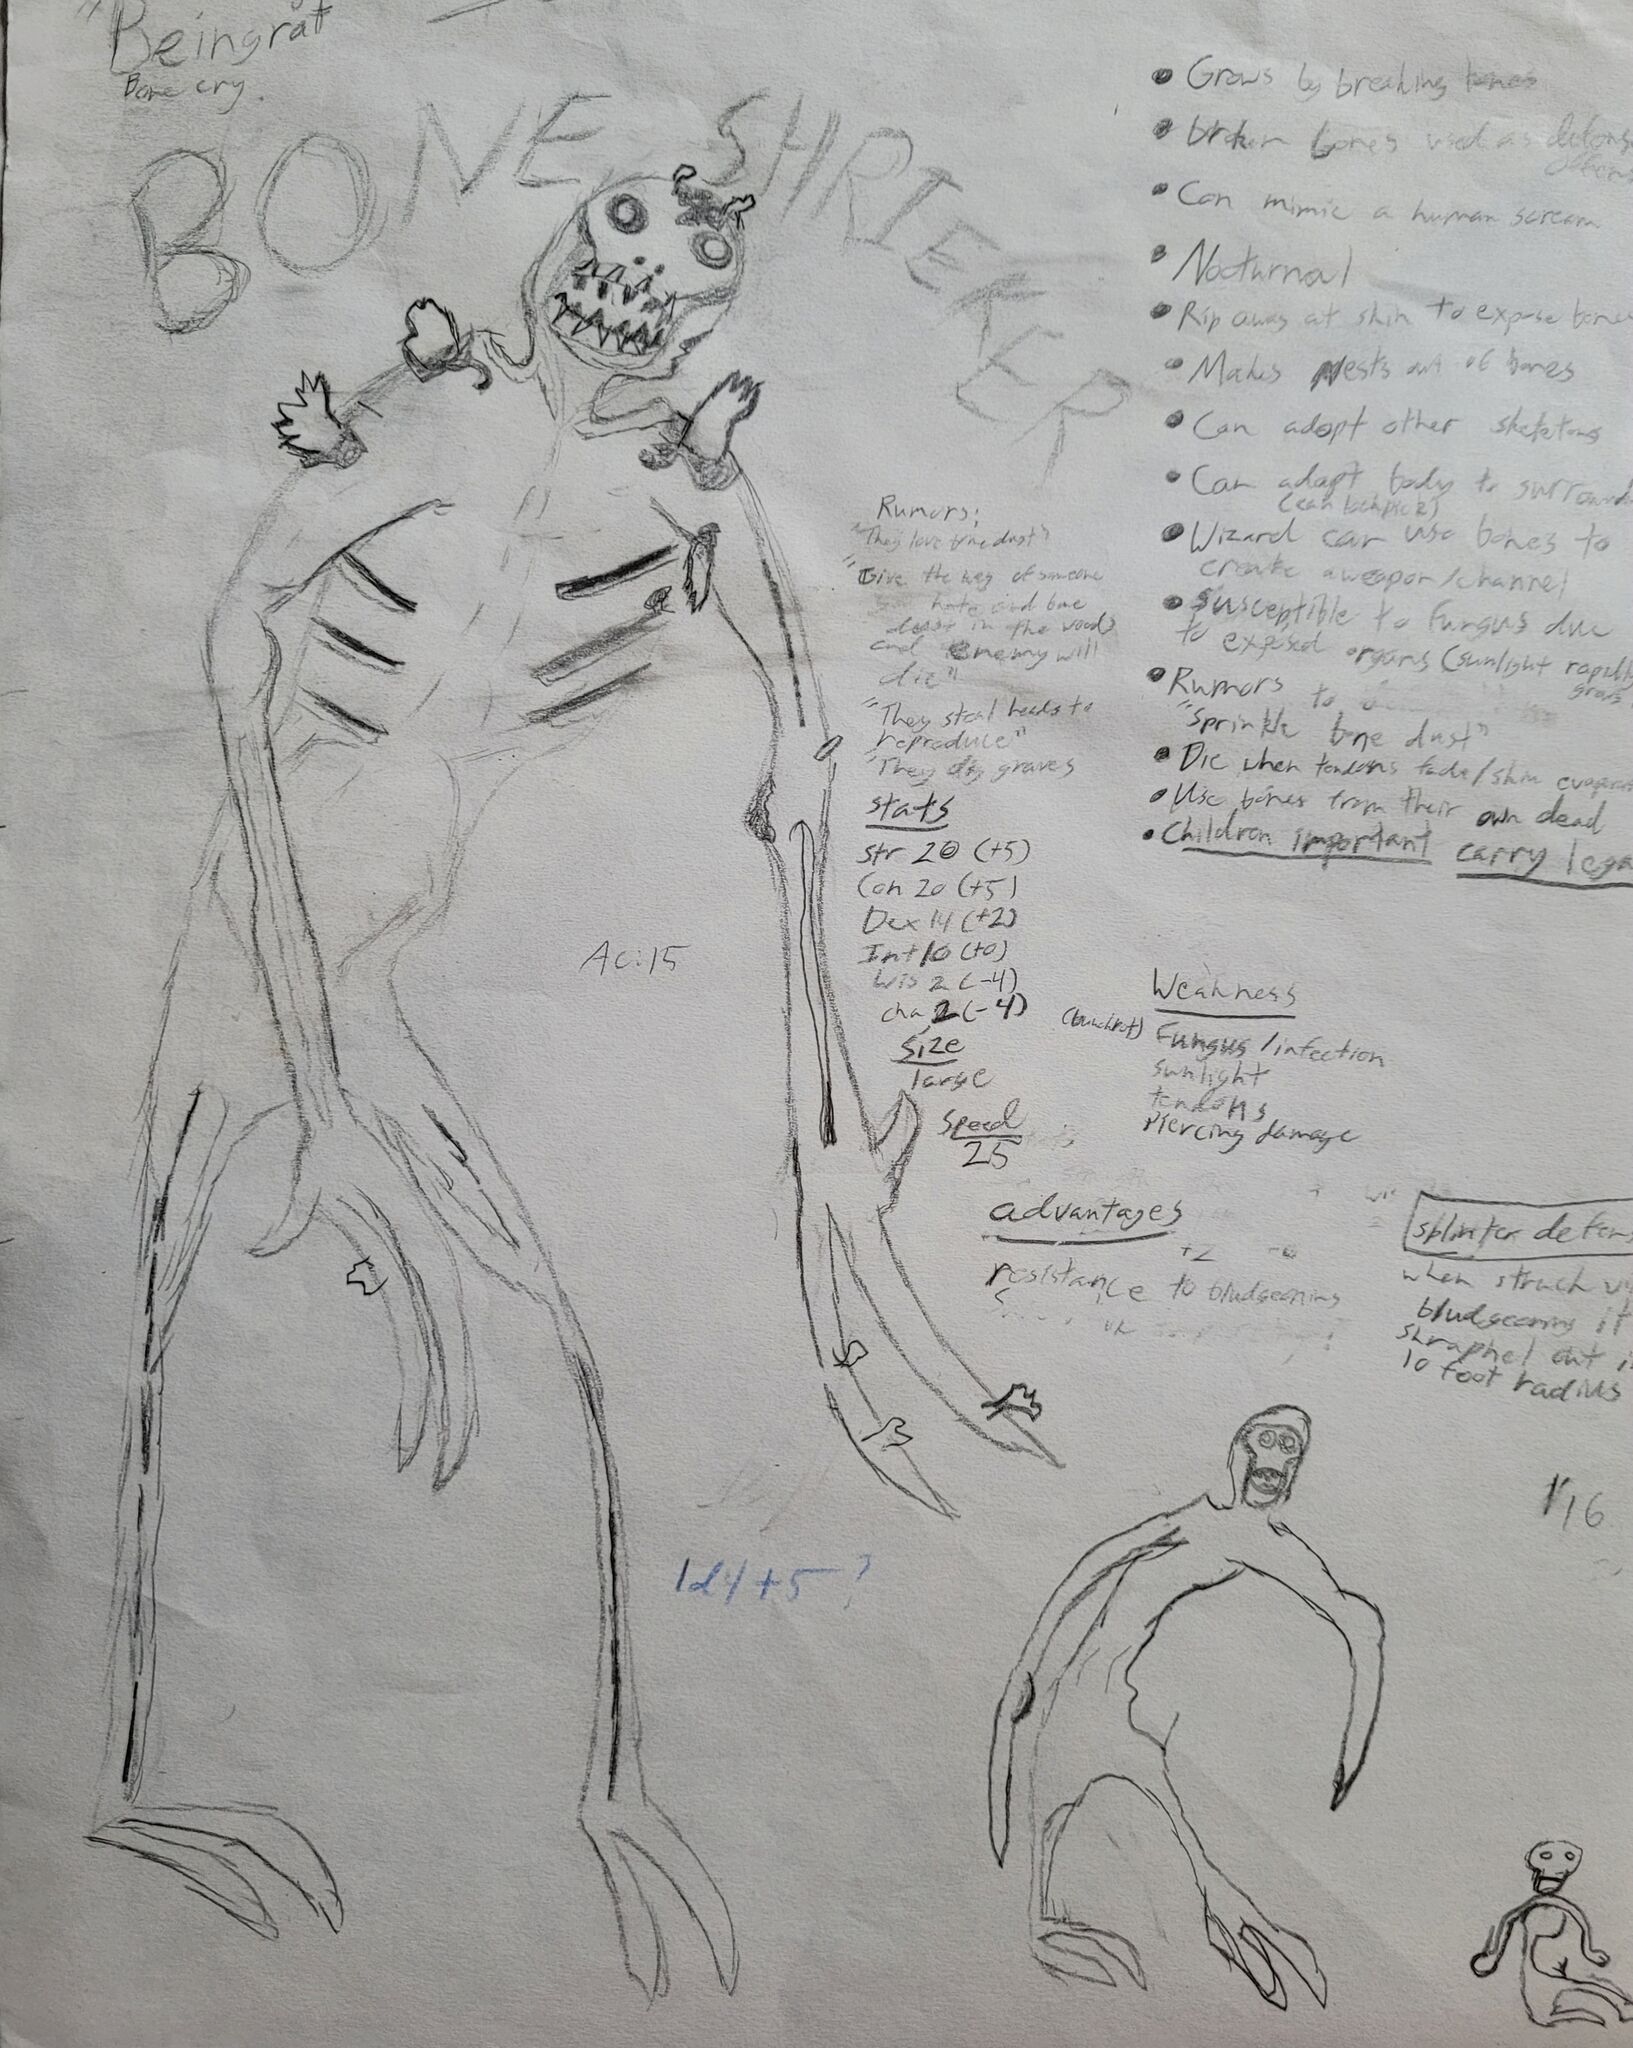 Beingrat
Bone cry.
BONE SHRIEKER
• Grows by breaking bones
• broken bones used as
• Can mimic a human scream
• Nocturnal
• Rip away at skin to expose bone
• Makes nests out of bones
• Can adopt other skeletons
• Can adapt body to surround
(can lockpick)
• Wizard can use bones to
create a weapon/channel
• Susceptible to Fungus due
to exposed organs (sunlight rapidly
grows
• Rumors to
"Sprinkle bone dust"
• Die when tendons fade/skin evapora
• Use bones from their own dead
• Children important carry lega
Rumors:
"They love bone dust"
"Give the of someone
hate and bone
dust in the woods
and enemy will
die"
"They steal heads to
reproduce"
"They dig graves
stats
Str 20 (+5)
Con 20 (+5)
Dex 14 (+2)
Int 10 (+0)
Wis 2 (-4)
cha 2 (-4)
Size
large
Speed
25
Ac:15
Weakness
Fungus/infection
sunlight
tendons
Piercing damage
advantages
+2
resistance to bludgeoning
splinter defens
when struck w
bludgeoning it
shraphel out i
10 foot radius
1d4+5?
1/16